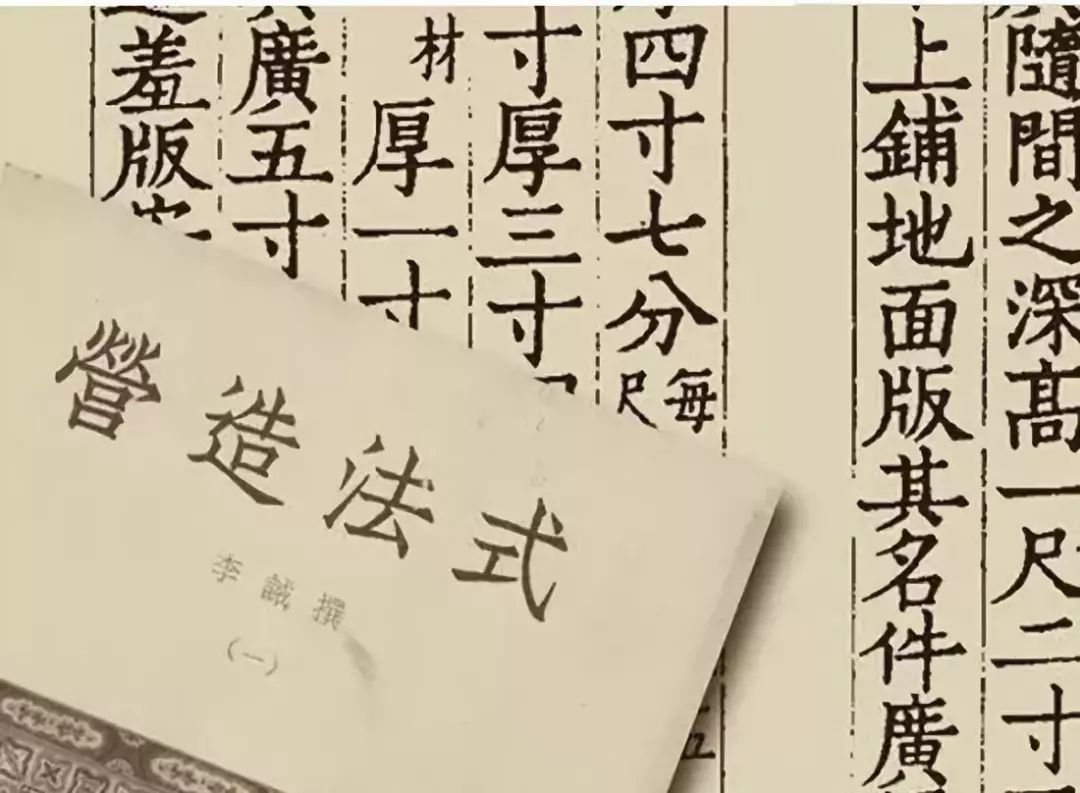 隨間之深髙一尺二寸
上鋪地面版其名件廣
四寸七分每尺
寸厚三寸
材厚一寸
廣五寸
羞版
營造法式
李誡撰
(一)